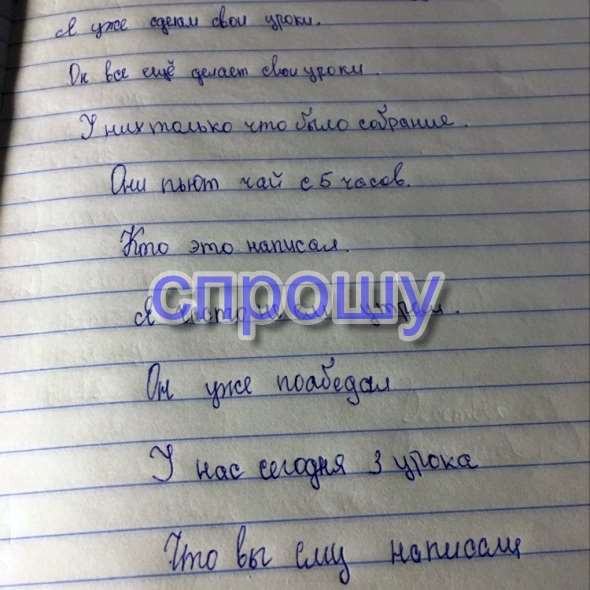 Я уже сделал свои уроки.
Он все ещё делает свои уроки.
У них только что было собрание.
Они пьют чай с 5 часов.
Кто это написал.
спрошу
Я
Он уже поабедал
У нас сегодня 3 урока
Что вы ему написали